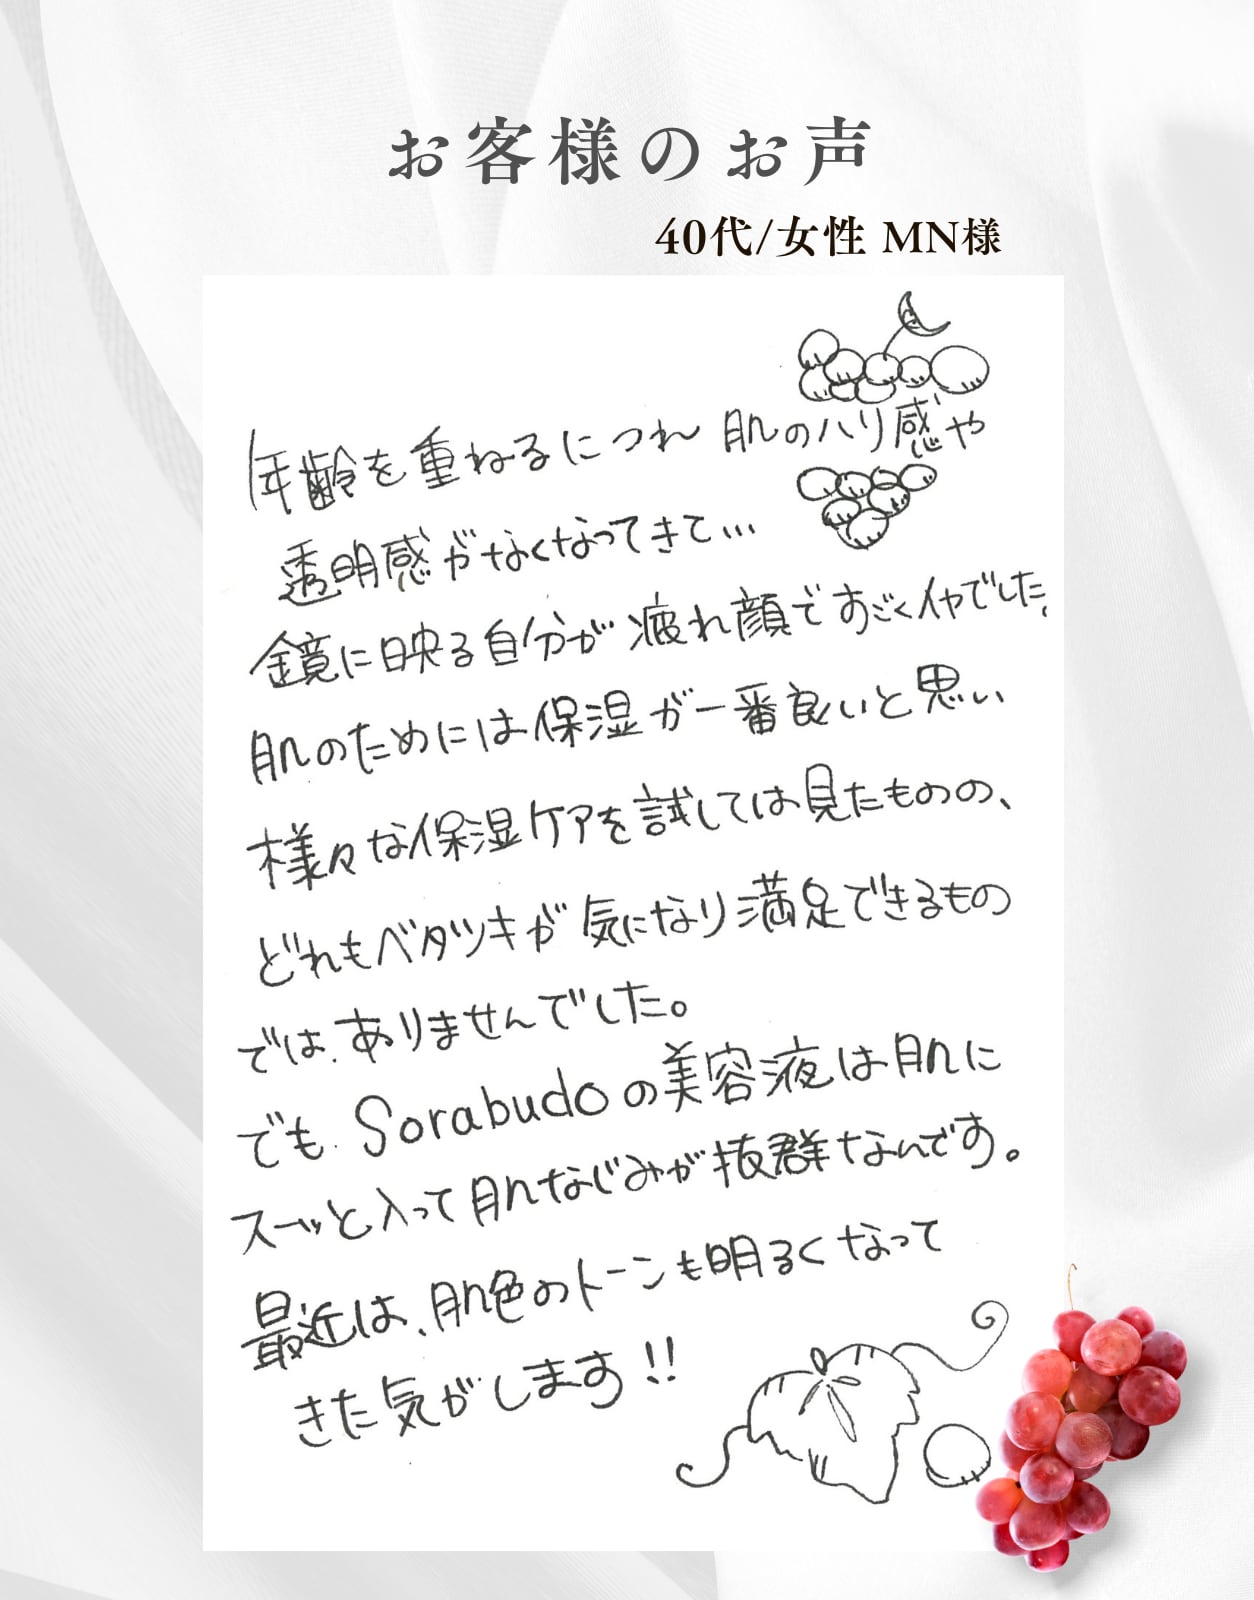 お客様のお声
40代/女性 MN様
年齢を重ねるにつれ 肌のハリ感や
透明感がなくなってきて…
鏡に映る自分が疲れ顔ですごくイヤでした、
肌のためには保湿が一番良いと思い
様々な保湿ケアを試しては見たものの、
どれもベタツキが気になり満足できるもの
では、ありませんでした。
でも、Sorabudoの美容液は肌に
スーッと入って肌なじみが抜群なんです。
最近は、肌色のトーンも明るくなって
きた気がします!!